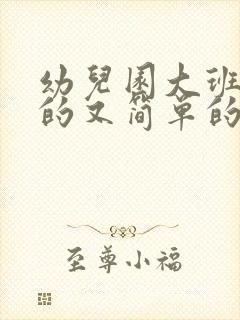 幼兒園大班
的又简单的
至尊小福